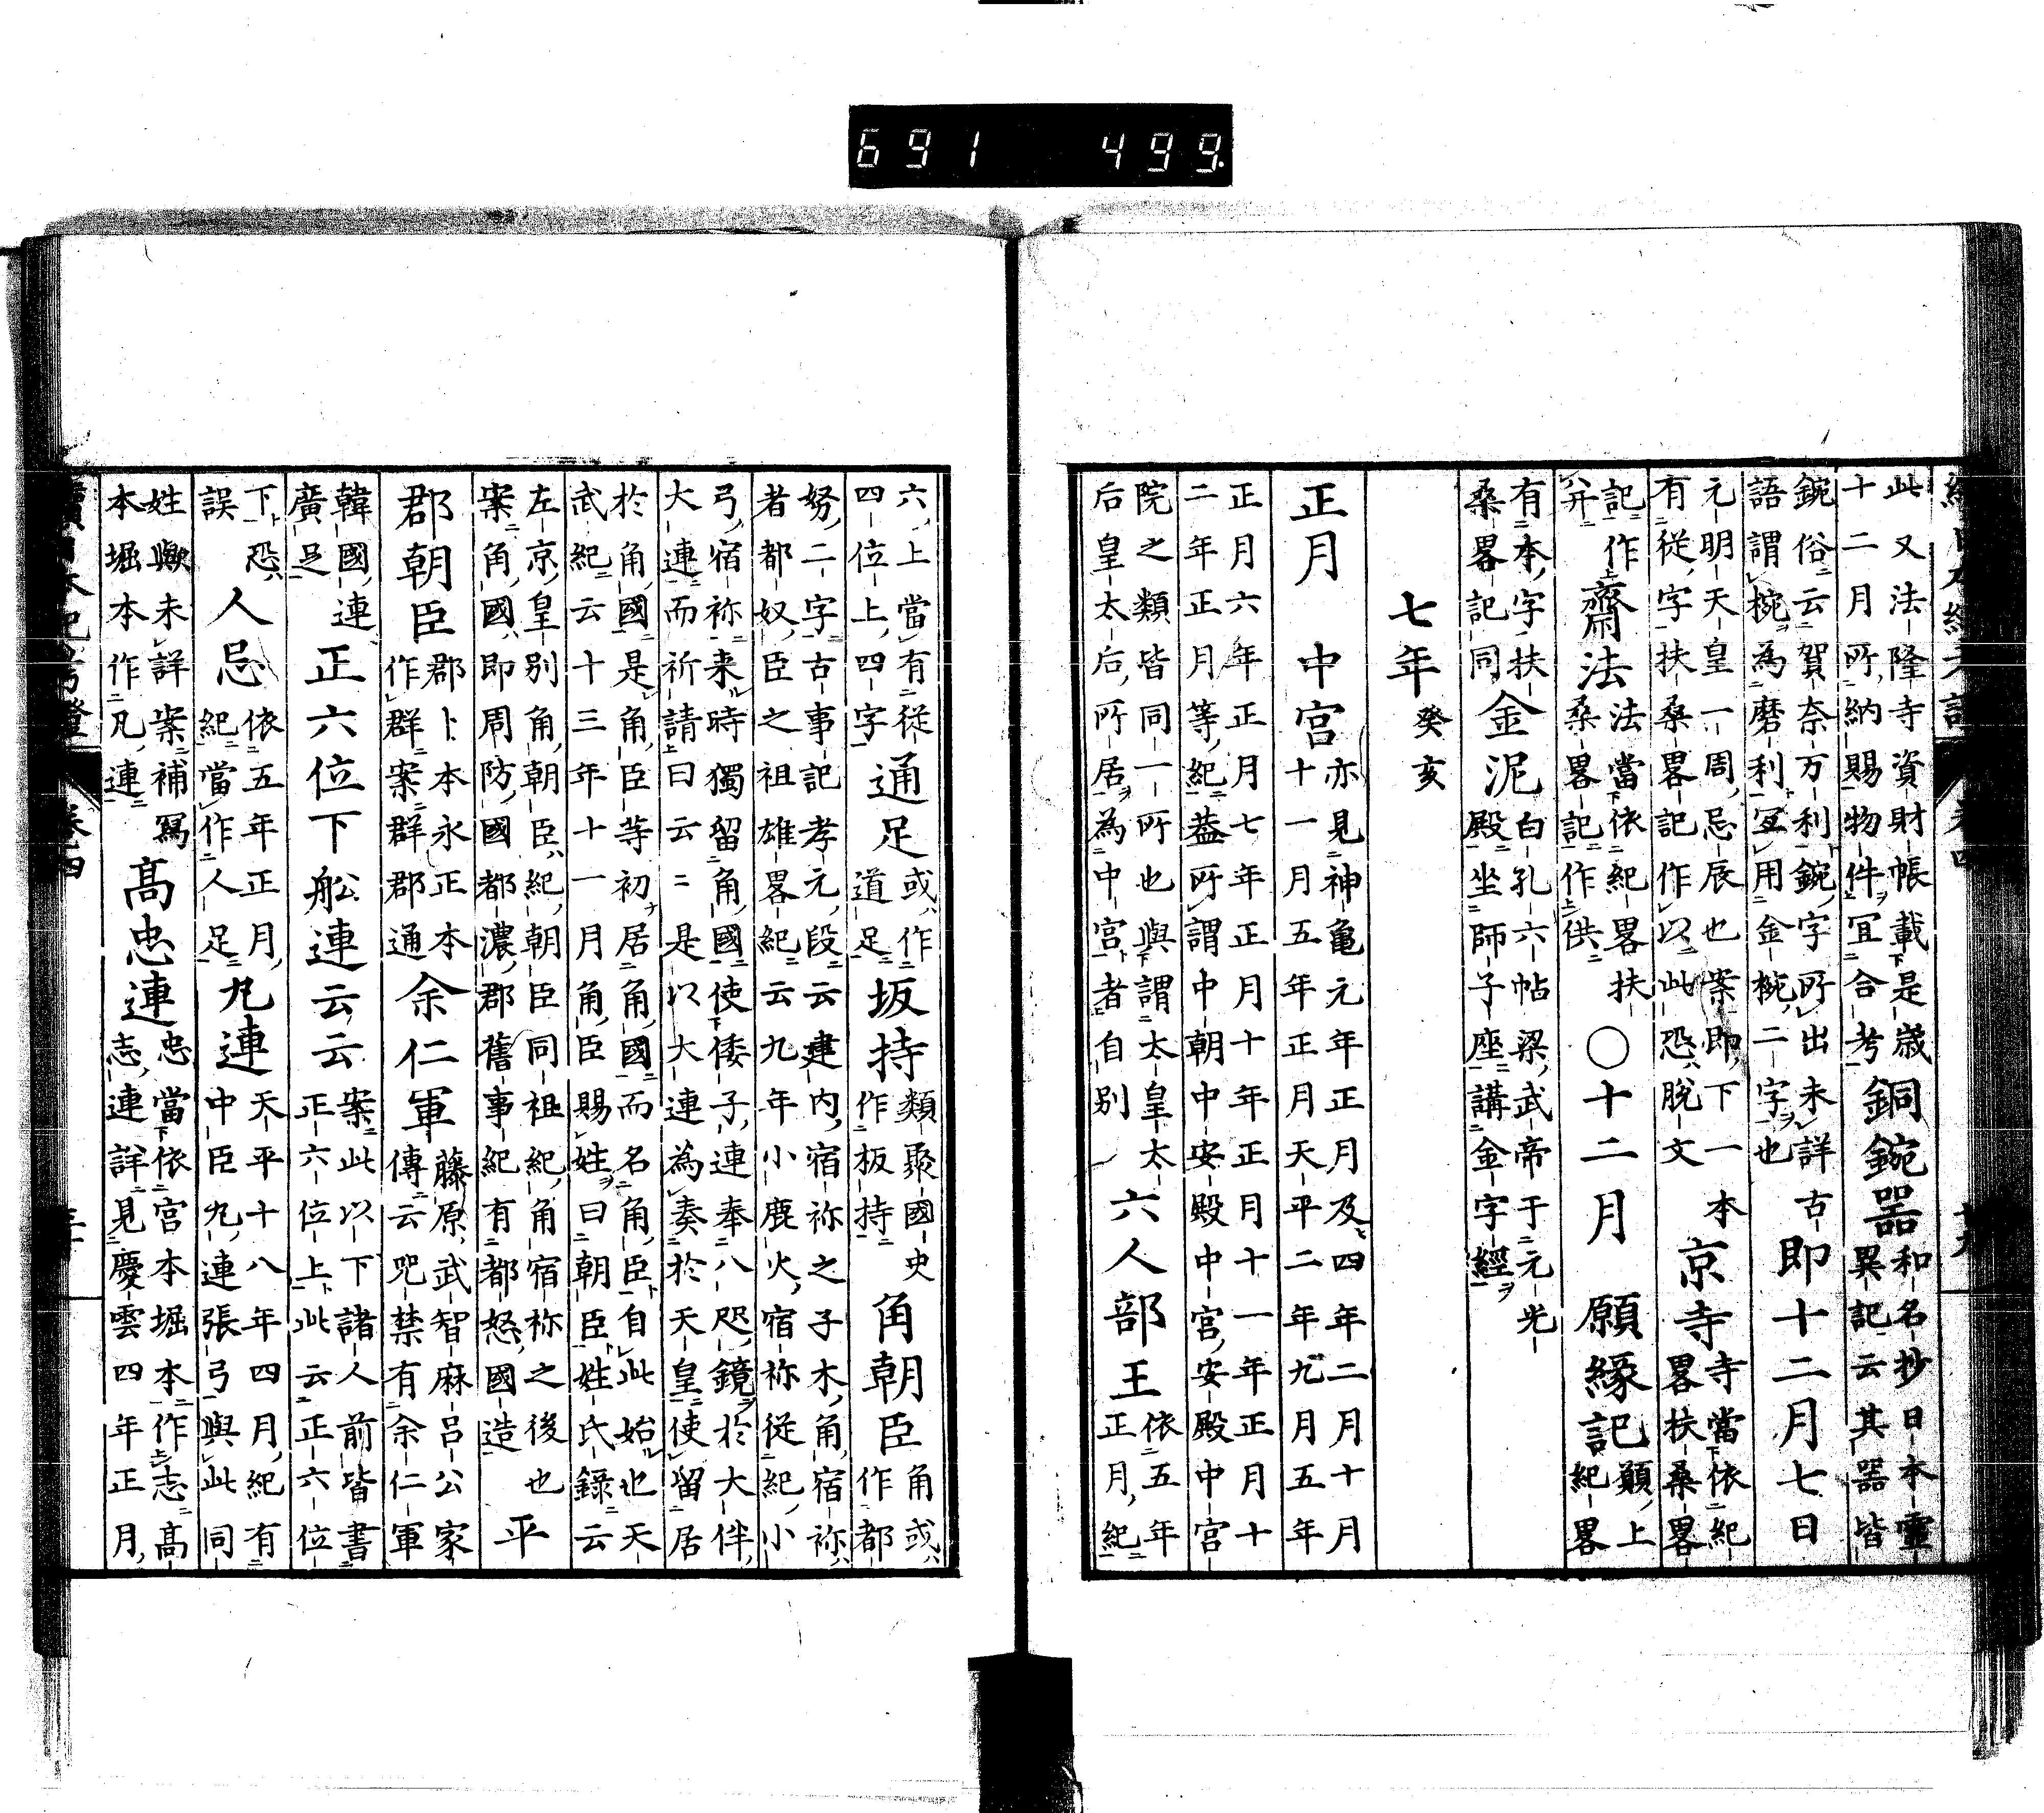 691 499
此又法隆寺資財帳載是歲
十二月所納賜物件宜合考
銅鋺器
和名抄日本靈
異記云其器皆
鋺俗云賀奈万利鋺字所出未詳古
語謂椀為磨利宜用金椀二字也
即十二月七日
元明天皇一周忌辰也案即下一本
有從字扶桑畧記作以此恐脫文
京寺
寺當依紀
畧扶桑畧
記作
八廾
齋法
法當依紀畧扶
桑畧記作供
○十二月
願緣記
願上
紀畧
有本字扶
桑畧記同
金泥
白孔六帖梁武帝于元光
殿坐師子座講金字經
七年
癸亥
正月
中宮
亦見神龜元年正月及四年二月十月
十一月五年正月天平二年九月五年
正月六年正月七年正月十年正月十一年正月十
二年正月等紀蓋所謂中朝中安殿中宮安殿中宮
院之類皆同一所也與謂太皇太
后皇太后所居為中宮者自別
六人部王
依五年
正月紀
六上當有從
四位上四字
通足
或作
道足
坂持
類聚國史
作板持
角朝臣
角或
作都
努二字古事記孝元段云建内宿祢之子木角宿祢
者都奴臣之祖雄畧紀云九年小鹿火宿祢從紀小
弓宿祢来時獨留角國使倭子連奉八咫鏡於大伴
大連而祈請曰云云是以大連為奏於天皇使留居
於角國是角臣等初居角國而名角臣自此始也天
武紀云十三年十一月角臣賜姓曰朝臣姓氏錄云
左京皇別角朝臣紀朝臣同祖紀角宿祢之後也
案角國即周防國都濃郡舊事紀有都怒國造
平
郡朝臣
郡卜本永正本
作群案群郡通
余仁軍
藤原武智麻呂公家
傳云咒禁有余仁軍
韓國連
廣足
正六位下船連云云
案此以下諸人前皆書
正六位上此云正六位
下恐
誤
人忌
依五年正月
紀當作人足
丸連
天平十八年四月紀有
中臣丸連張弓與此同
姓歟未詳案補寫
本堀本作凡連
高忠連
忠當依宮本堀本作志高
志連詳見慶雲四年正月